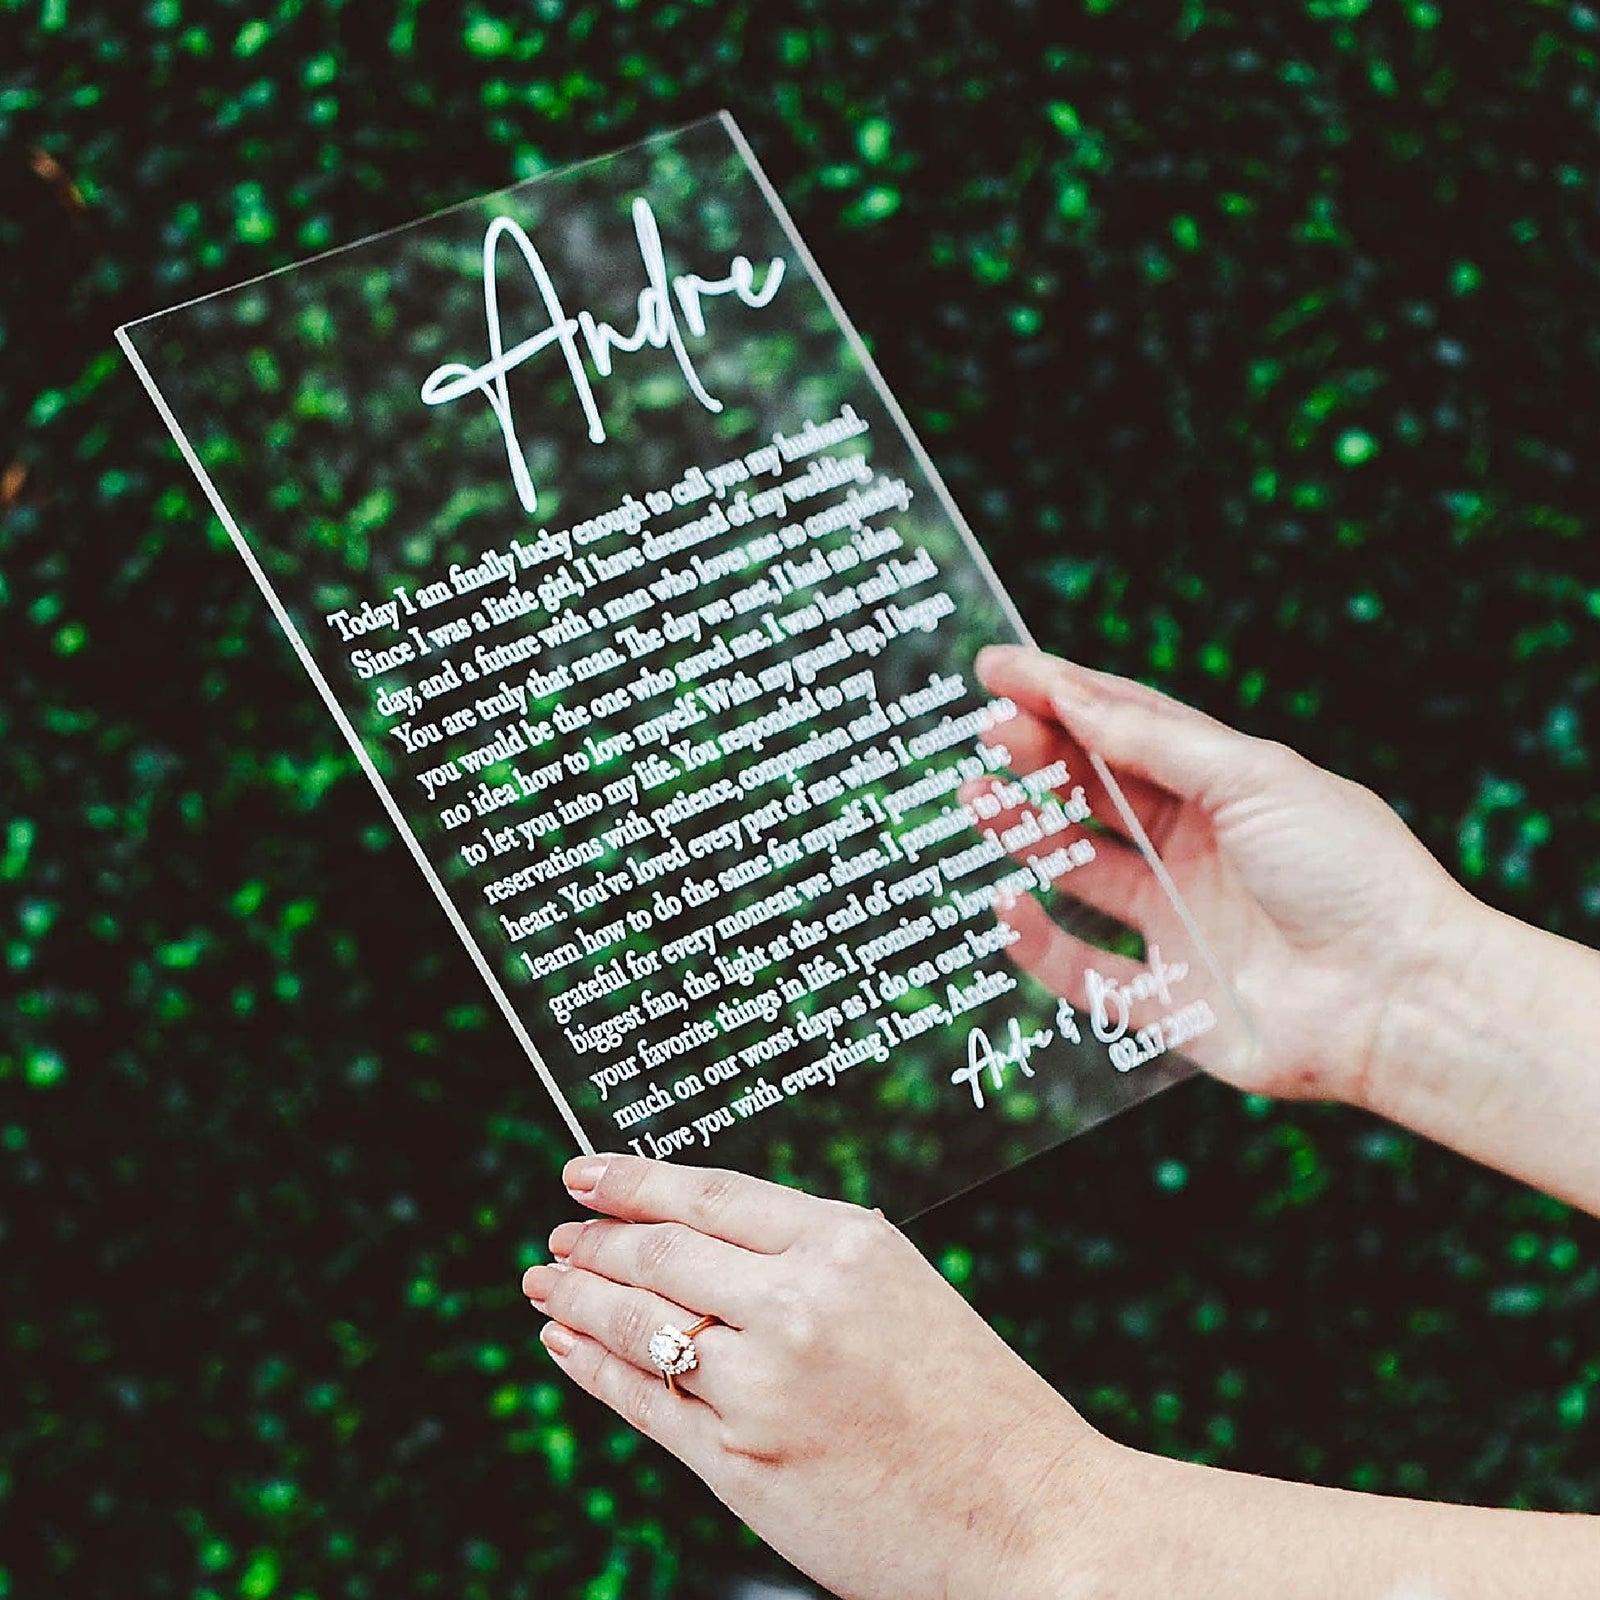 Andre
Today I am finally lucky enough to call you my husband.
Since I was a little girl, I have dreamed of my wedding
day, and a future with a man who loves me so completely.
You are truly that man. The day we met, I had no idea
you would be the one who saved me. I was lost and had
no idea how to love myself. With my guard up, I began
to let you into my life. You responded to my
reservations with patience, compassion and a tender
heart. You've loved every part of me while I continue to
learn how to do the same for myself. I promise to be
grateful for every moment we share. I promise to be your
biggest fan, the light at the end of every tunnel and all of
your favorite things in life. I promise to love you just as
much on our worst days as I do on our best.
I love you with everything I have, Andre.
Andre & Brooke
02.17.2023